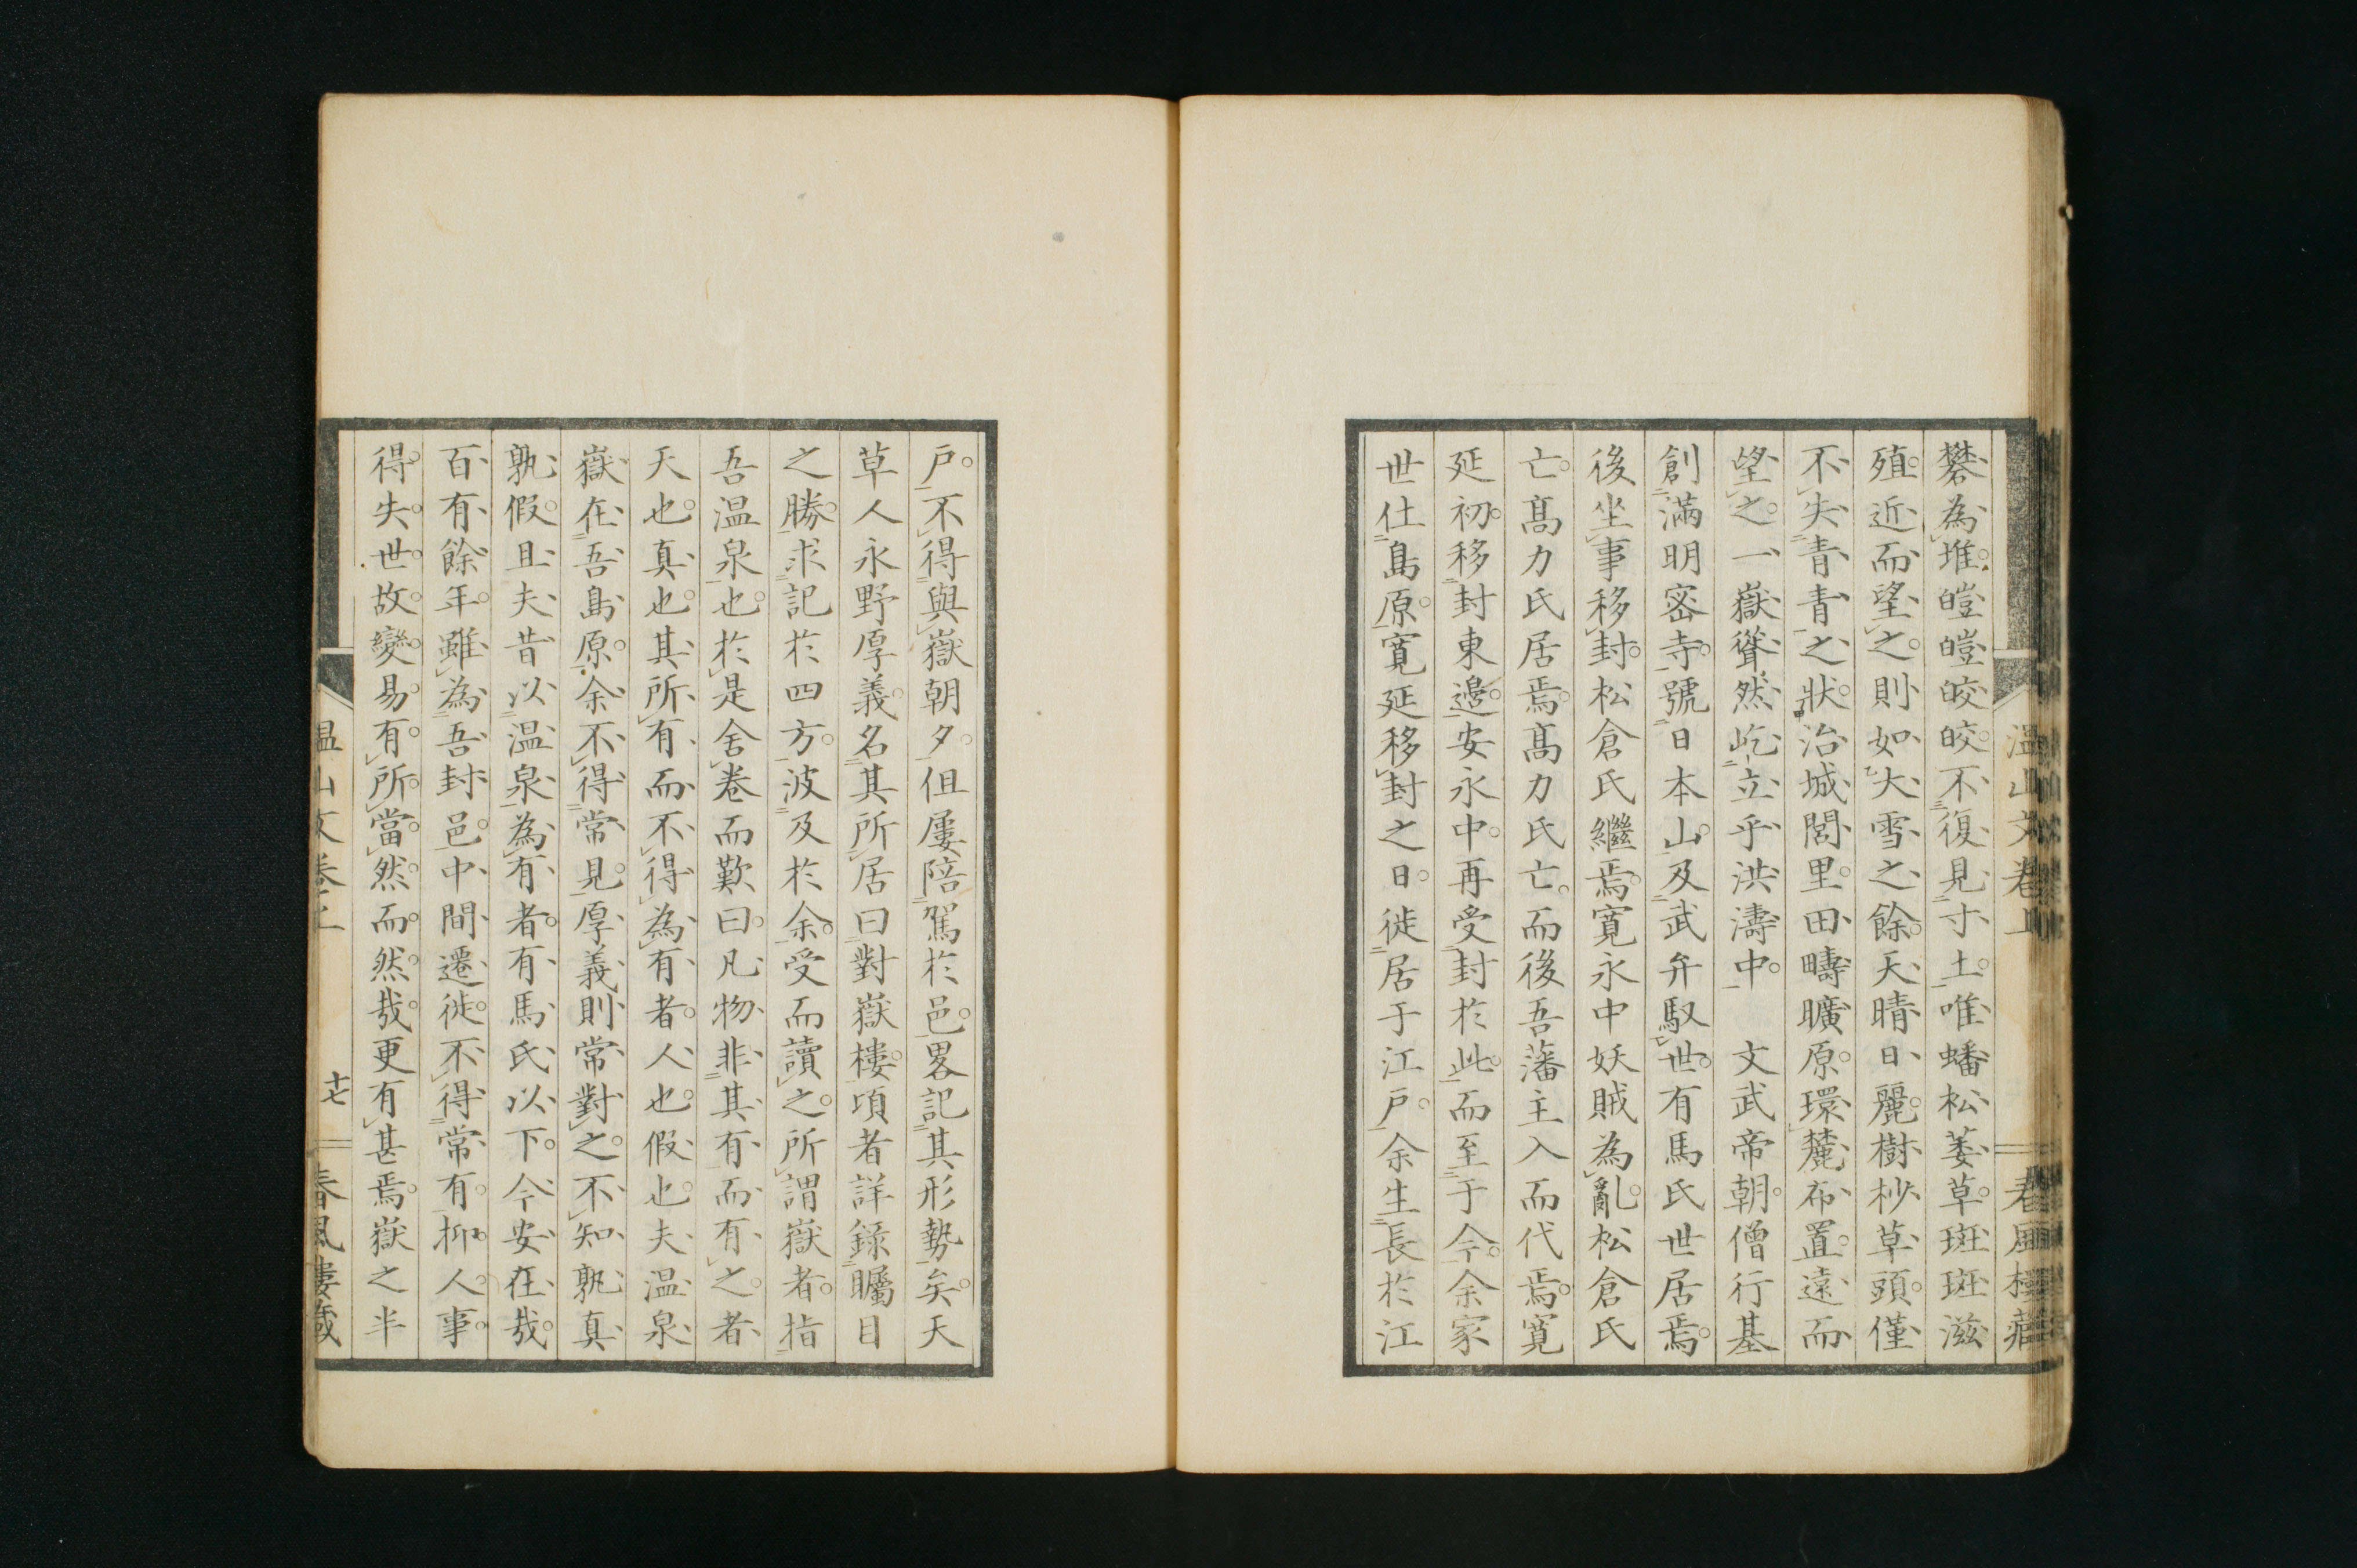 温山文卷上
春風樓藏
礬為堆皚皚皎皎不復見寸土唯蟠松萎草斑斑滋
殖近而望之則如大雪之餘天晴日麗樹杪草頭僅
不失青青之狀治城閭里田疇曠原環麓布置遠而
望之一嶽聳然屹立乎洪濤中　文武帝朝僧行基
創滿明密寺號日本山及武弁馭世有馬氏世居焉
後坐事移封松倉氏繼焉寬永中妖賊為亂松倉氏
亡髙力氏居焉髙力氏亡而後吾藩主入而代焉寬
延初移封東邊安永中再受封於此而至于今余家
世仕島原寬延移封之日徙居于江戶余生長於江
戶不得與嶽朝夕但屢陪駕於邑畧記其形勢矣天
草人永野厚義名其所居曰對嶽樓頃者詳錄矚目
之勝求記於四方波及於余受而讀之所謂嶽者指
吾温泉也於是舍卷而歎曰凡物非其有而有之者
天也真也其所有而不得為有者人也假也夫温泉
嶽在吾島原余不得常見厚義則常對之不知孰真
孰假且夫昔以温泉為有者有馬氏以下今安在哉
百有餘年雖為吾封邑中間遷徙不得常有抑人事
得失世故變易有所當然而然哉更有甚焉嶽之半
温山文卷上
十七
春風樓藏